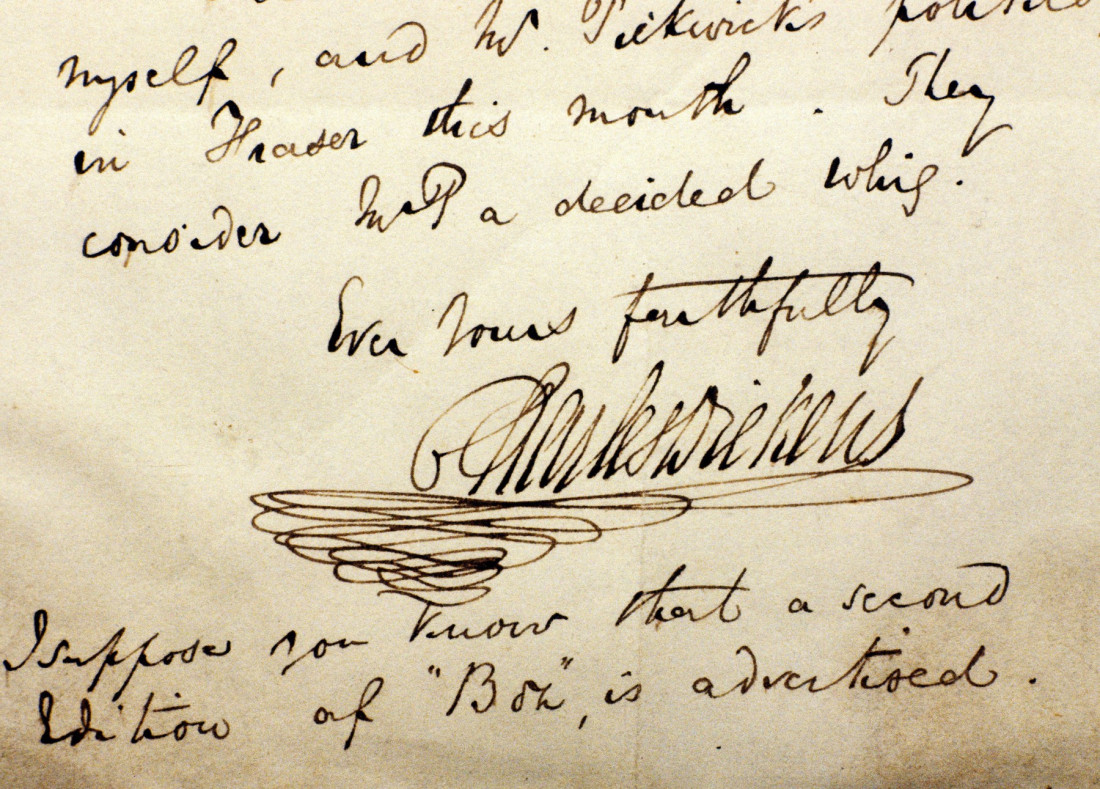 myself, and Mr. Pickwick's
in Fraser this month. They
consider Mr P a decided whig.
Ever Yours faithfully
Charles Dickens
I suppose you know that a second
Edition of "Boz", is advertised.